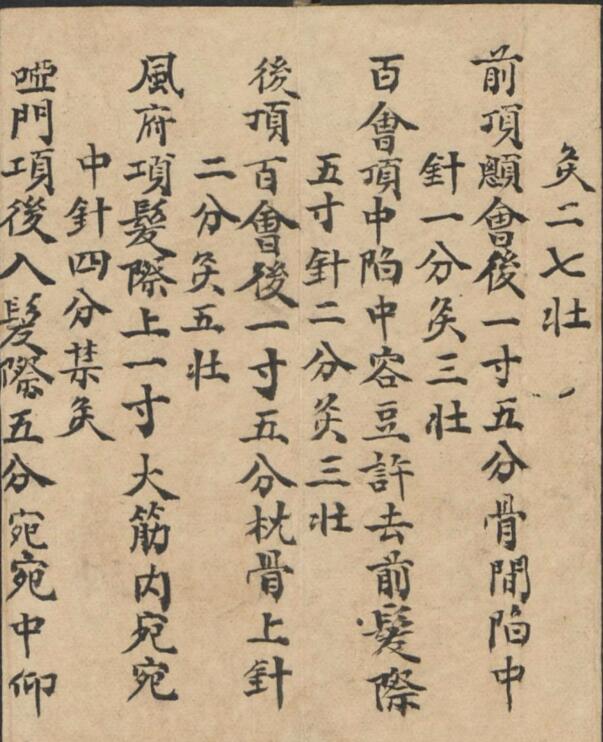 灸二七壮
前頂顖會後一寸五分骨間陷中
針一分灸三壮
百會頂中陷中容豆許去前髮際
五寸針二分灸三壮
後頂百會後一寸五分枕骨上針
二分灸五壮
風府項髮際上一寸大筋内宛宛
中針四分禁灸
啞門項後入髮際五分宛宛中仰